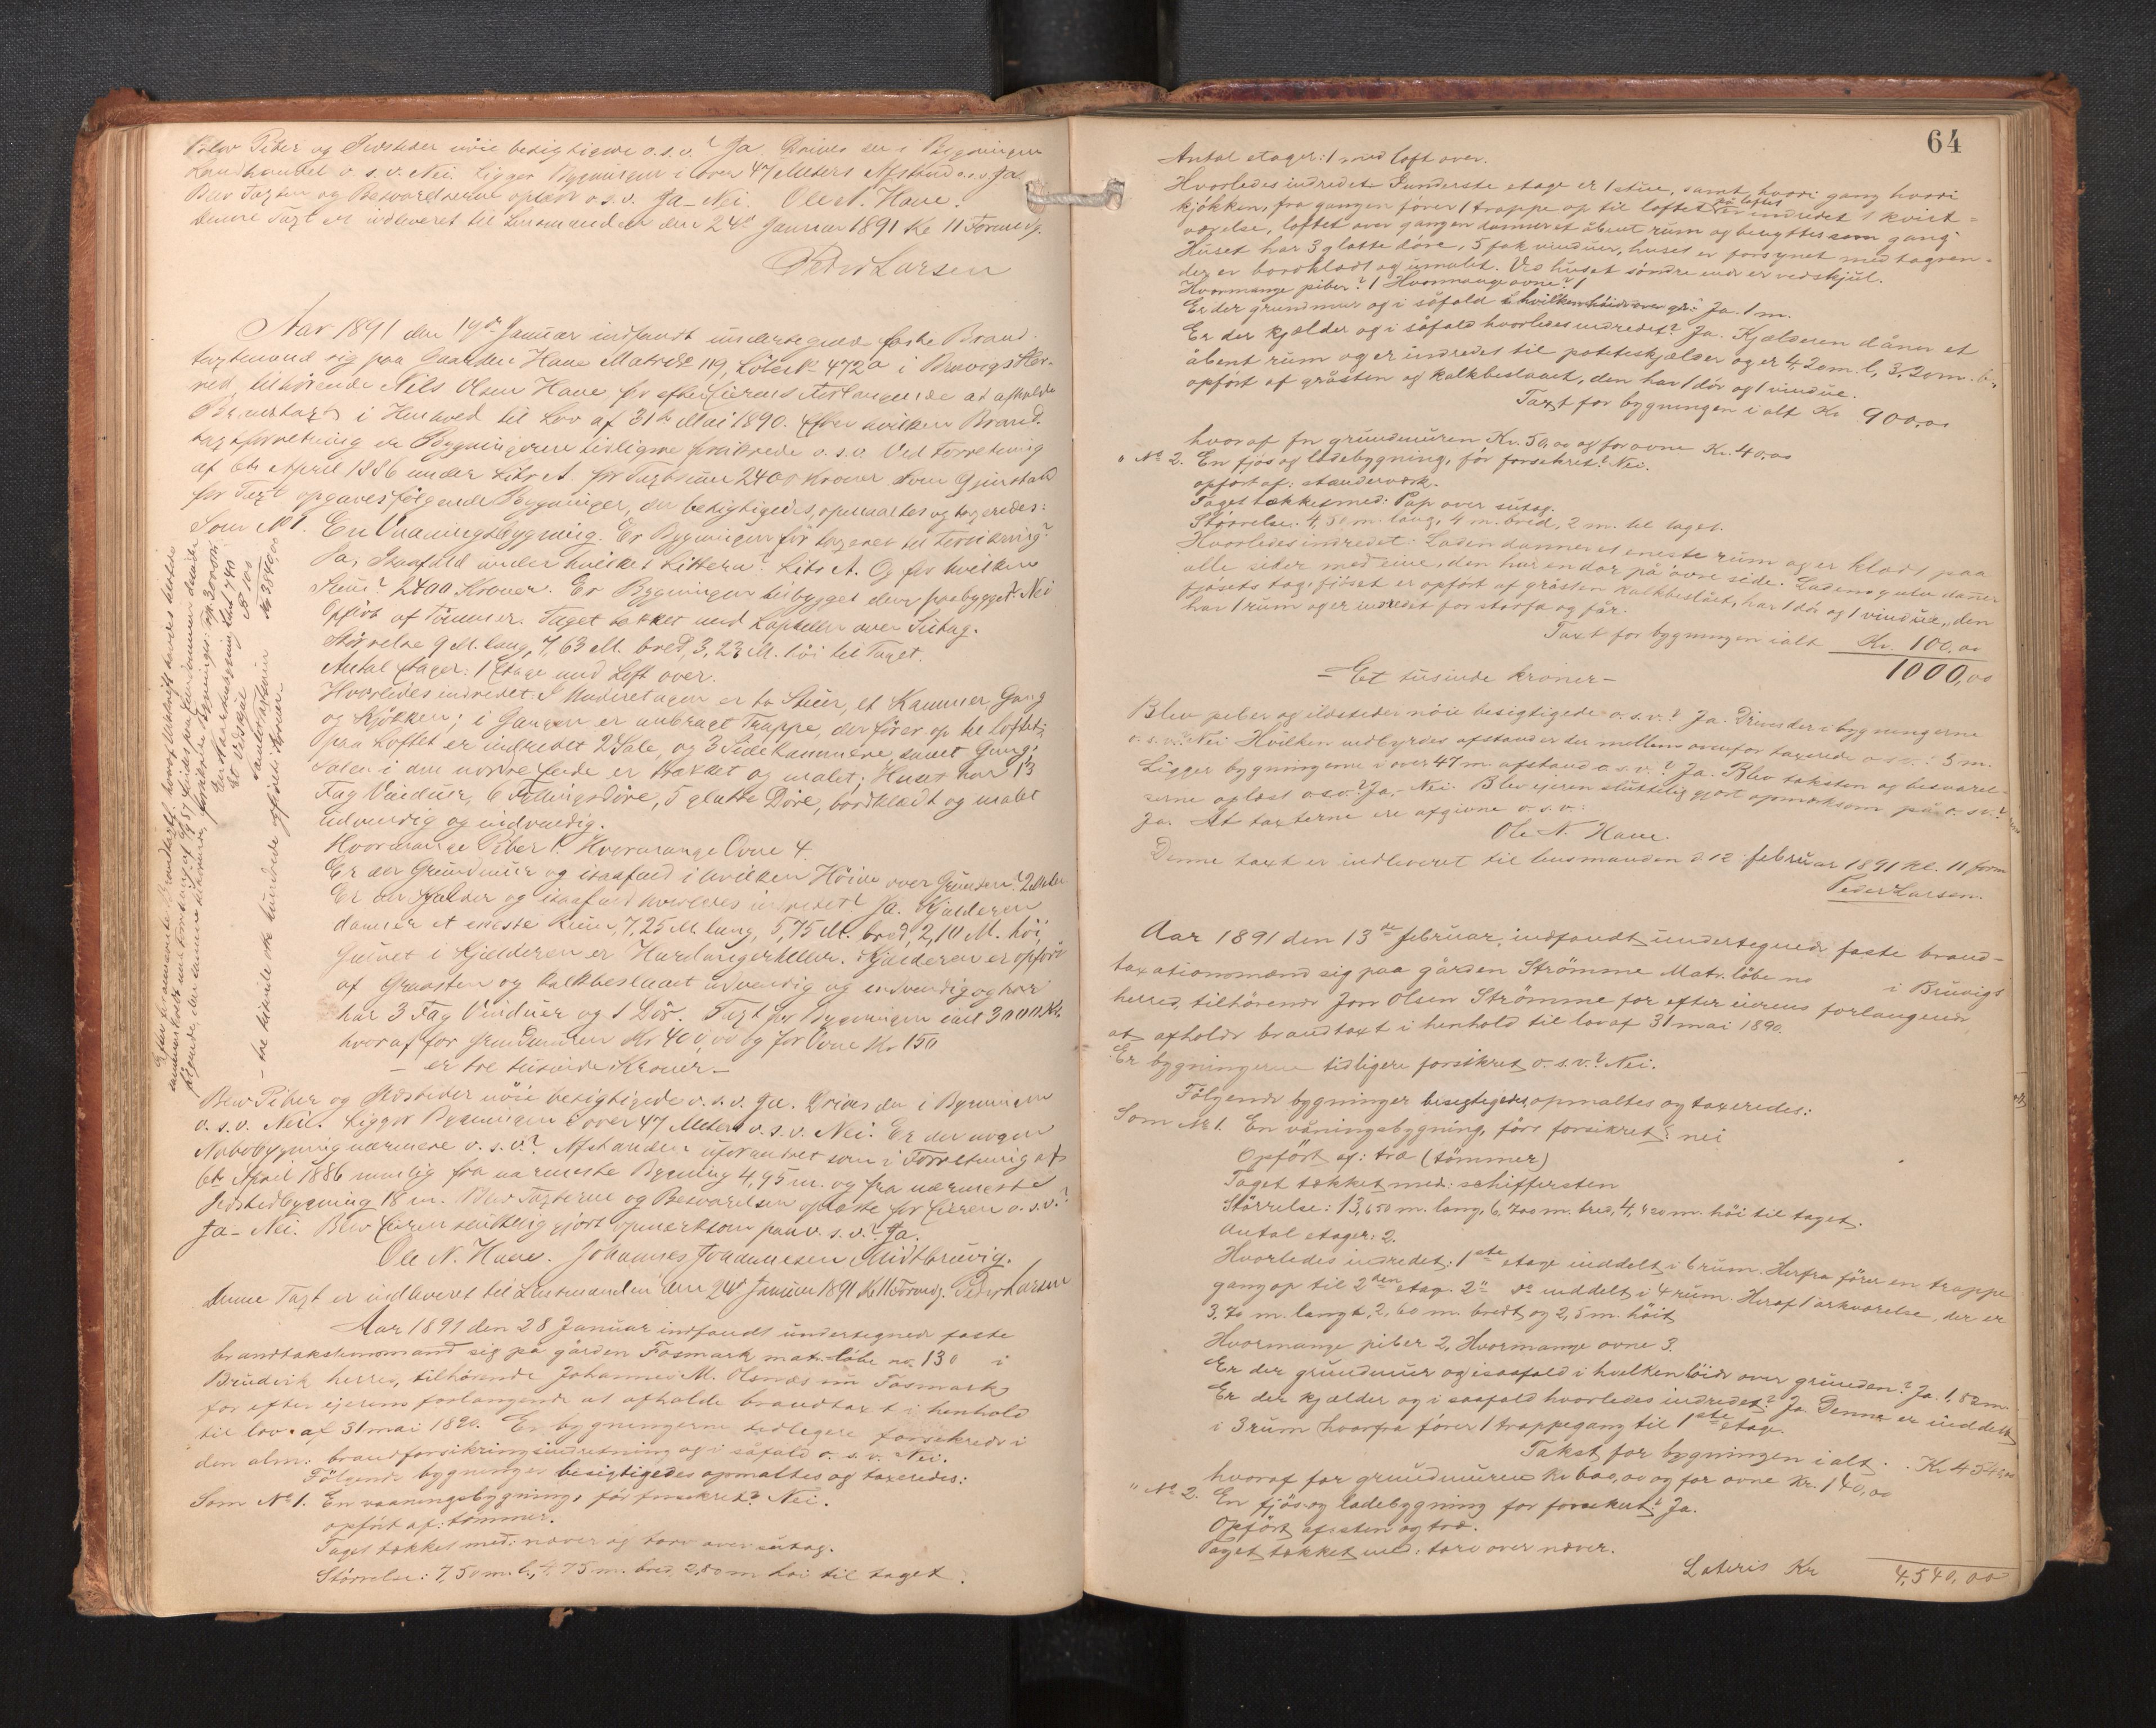 Blev Piber og Ildsteder nöie besigtigede o.s.v.? Ja. Drives der i Bygningen
Landhandel o.s.v. Nei. Ligger Bygningen i over 47 Meters Afstand o.s.v. Ja
Blev Taxten og Besvarelserne oplæst o.s.v. Ja - Nei. Ole N. Hane.
Denne Taxt er indleveret til Lensmanden den 24de Januar 1891 Kl 11 Formdg.
Peder Larsen
Aar 1891 den 19de Januar indfandt undertegnede faste Brand-
taxtmand sig paa Gaarden Hane Matrik 119, Löbe No 472a i Bruvigs Her-
red, tilhörende Nils Olsen Hane for efter Eierens Forlangende at afholde
Brandtaxt i Henhold til Lov af 31te Mai 1890. Efter hvilken Brand-
taxtforretning er Bygningerne tidligere forsikrede o.s.v. Ved Forretning
af 6te April 1886 under Litr A. for Taxtsum 2400 Kroner. Som Gjenstand
for Taxt opgaves fölgende Bygninger, der besigtigedes, opmaaltes og taxeredes:
Som No 1. En Vaaningsbygning. Er Bygningen för taxeret til Forsikring?
Ja, Isaafald under hvilket Littera? Litr A. Og for hvilken
Sum? 2400 Kroner. Er Bygningen tilbygget eller paabygget? Nei
Opfört af Tömmer. Taget tækket med Lapheller over Sutag.
Störrelse 9 M. lang, 7,63 M. bred, 3,23 M. höi til Taget.
Antal Etager: 1 Etage med Loft over.
Hvorledes indredet. I Underetagen er to Stuer, et Kammer, Gang
og Kjökken; i Gangen er anbragt Trappe, der förer op til Loftet;
Paa Loftet er indredet 2 Sale, og 3 Sidekammere samt Gang;
Salen i den nordre Ende er trækket og malet; Huset har 13
Fag Vinduer, 6 Fyllingsdöre, 5 glatte Döre, bordklædt og malet
udvendig og indvendig.
Hvormange Piber 1. Hvormange Ovne 4.
Er der Grundmur og isaafald i hvilken Höide over Grunden? 2 Meter
Er der Kjælder og isaafald hvorledes indredet? Ja. Kjælderen
danner et eneste Rum, 7,25 M. lang, 5,75 M. bred, 2,10 M. höi,
Gulvet i Kjælderen er Hardangerheller. Kjælderen er opfört
af Graasten og kalkbeslaaet udvendig og indvendig og har
har 3 Fag Vinduer og 1 Dör. Taxt for Bygningen ialt 3000 Kr.
hvoraf for Grundmuren Kr 400,00 og for Ovne Kr 150
- er tre tusinde Kroner. -
fölgende, der samme tilhörende, forsikrede Bygninger: No 1 300000
Et Vedskjul
Kr 3840,00
- tre tusinde otte hundrede og firti Kroner
Blev Piber og Ildsteder nöie besigtigede o.s.v. Ja. Drives der i Bygningen
o.s.v. Nei. Ligger Bygningen i over 47 Meter o.s.v. Nei. Er der nogen
Nabobygning nærmere o.s.v.? Afstanden uforandret som i Forretning af
6te April 1886 nemlig fra nærmeste Bygning 4,95 m. og fra nærmeste
Ildstedbygning 18 m. Blev Taxterne og Besvarelsen oplæste for Eieren o.s.v.?
Ja - Nei. Blev Eieren skriftlig gjort opmærksom paa o.s.v.? Ja.
Ole N. Hane. Johannes Johannesen Midtbruvig.
Denne Taxt er indleveret til Lensmanden den 24de Januar 1891 Kl 11 Formdg. Peder Larsen
Aar 1891 den 28 Januar indfandt undertegnede faste
brandtakstensmand sig på gården Fosmark matr. löbe no. 130 i
Brudvik herred, tilhörende Johannes M. Olsnæs nu Fosmark
for efter ejerens forlangende at afholde brandtaxt i henhold
til lov af 31 mai 1890. Er bygningerne tidligere forsikrede i
den alm: brandforsikringsindretning og i såfald o.s.v. Nei.
Fölgende bygninger besigtigedes opmaltes og taxeredes:
Som No 1. En vaaningsbygning, för forsikret? Nei.
opfört af: tömmer.
Taget tækket med: næver og torv over sutag.
Störrelse: 7,50 m. l., 4,75 m. bred, 2,80 m höi til taget.
64
Antal etager: 1 med loft over.
Hvorledes indredet: I underste etage er 1 stue, samt hvori gang hvori
kjökken, fra gangen förer 1 trappe op til loftet på loftet er indredet 1 kvist-
værelse, loftet over gangen danner et åbent rum og benyttes som gang
Huset har 3 glatte döre, 5 fak vinduer, huset er forsynet med tagren-
der er bordklædt og umalet. Ved husets söndre ende er vedskjul.
Hvormange piber? 1 Hvormange ovne? 1
Er der grundmur og i såfald i hvilken höide over gr? Ja. 1 m.
Er der kjælder og i såfald hvorledes indredet? Ja. Kjælderen dåner et
åbent rum og er indredet til poteteskjælder og er 4,20 m. l, 3,20 m. b.,
opfört af gråsten og kalkbeslaaet, den har 1 dör og 1 vindue.
Taxt for bygningen i alt Kr 900,00
hvoraf for grundmuren Kr. 50,00 og for ovne Kr. 40,00
" No 2. En fjös og ladebygning, för forsekret? Nei.
opfört af: standerværk.
Taget tækket med: Pap over sutag.
Störrelse: 4,50 m. lang, 4 m. bred, 2 m. til taget.
Hvorledes indredet: Laden danner et eneste rum og er klædt paa
alle sider med eine, den har en dör på övre side. Ladens gulv daner
fjösets tag, fjöset er opfört af gråsten kalkbeslået, har 1 dör og 1 vindue, den
har 1 rum og er indredet for storfæ og får.
Taxt for bygningen ialt Kr. 100,00
- Et tusinde kroner - 1000,00
Blev piber og ildsteder nöie besigtigede o.s.v.? Ja. Drives der i bygningerne
o.s.v.? Nei Hvilken indbyrdes afstand er der mellem ovenfor taxerede o.s.v.: 5 m.
Ligger bygningerne i over 47 m. afstand o.s.v.? Ja. Blev taksten og besvarel-
serne oplæst o.s.v.? Ja,- Nei. Blev ejeren skriftelig gjort opmærksom på o.s.v.?
Ja. At taxterne ere afgivne o.s.v.
Ole N. Hane.
Denne taxt er indleveret til lensmanden d. 12 februar 1891 kl. 11 form
Peder Larsen.
Aar 1891 den 13de februar, indfandt undertegnede faste brand-
taxationsmand sig paa gården Strömme Matr. löbe no i Bruvigs
herred, tilhörende Jon Olsen Strömme for efter eierens forlangende
at afholde brandtaxt i henhold til lov af 31 mai 1890.
Er bygningerne tidligere forsikret o.s.v.? Nei.
Fölgende bygninger besigtigedes, opmaltes og taxeredes:
Som No 1. En våningsbygning, förr forsikret? nei
Opfört af: træ (tömmer)
Taget tækket med: schiffersten
Störrelse: 13,650 m. lang, 6,700 m. bred, 4,420 m. höi til taget.
Antal etager: 2.
Hvorledes indredet: 1ste etage inddelt i 6 rum. Herfra förer en trappe
gang op til 2den etag. 2" do inddelt i 4 rum. Heraf 1 arkværelse, der er
3,70 m. langt, 2,60 m. bredt og 2,5 m. höit
Hvormange piber 2, Hvormange ovne 3.
Er der grundmur og isaafald i hvilken höide over grunden? Ja. 1,80 m.
Er der kjælder og i saafald hvorledes indredet? Ja. Denne er inddelt
i 3 rum hvorfra förer 1 trappegang til 1ste etage.
Takst for bygningen i alt . . Kr 4540,00
hvoraf for grundmuren Kr 600,00 og for ovne Kr. 140,00
" No 2. En fjös og ladebygning for forsekret? Ja.
Opfört af: sten og træ.
Taget tækket med: torv over næver.
Lateris Kr 4,540,00